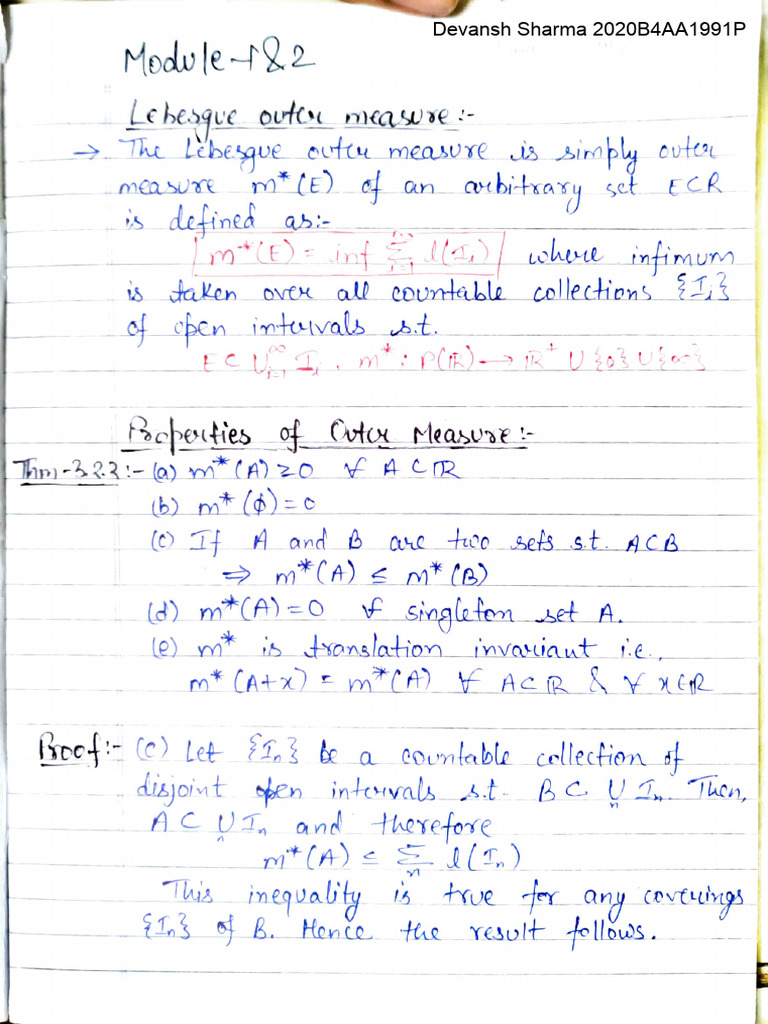 Devansh Sharma 2020B4AA1991P
Module-1&2
Lebesgue outer measure:-
→ The Lebesgue outer measure is simply outer
measure m*(E) of an arbitrary set E⊂R
is defined as:-
m*(E) = inf ∑_{i=1}^{∞} l(I_i) where infimum
is taken over all countable collections {I_i}
of open intervals s.t.
E ⊂ ∪_{i=1}^{∞} I_i, m* : P(ℝ) → ℝ⁺ ∪ {0} ∪ {∞}
Properties of Outer Measure:-
Thm-3.2.2:- (a) m*(A) ≥ 0 ∀ A ⊂ ℝ
(b) m*(ϕ) = 0
(c) If A and B are two sets s.t. A⊂B
⇒ m*(A) ≤ m*(B)
(d) m*(A) = 0 ∀ singleton set A.
(e) m* is translation invariant i.e.,
m*(A+x) = m*(A) ∀ A⊂ℝ & ∀ x∈ℝ
Proof:- (c) Let {I_n} be a countable collection of
disjoint open intervals s.t. B ⊂ ∪_n I_n. Then,
A ⊂ ∪_n I_n and therefore
m*(A) ≤ ∑_n l(I_n)
This inequality is true for any coverings
{I_n} of B. Hence the result follows.